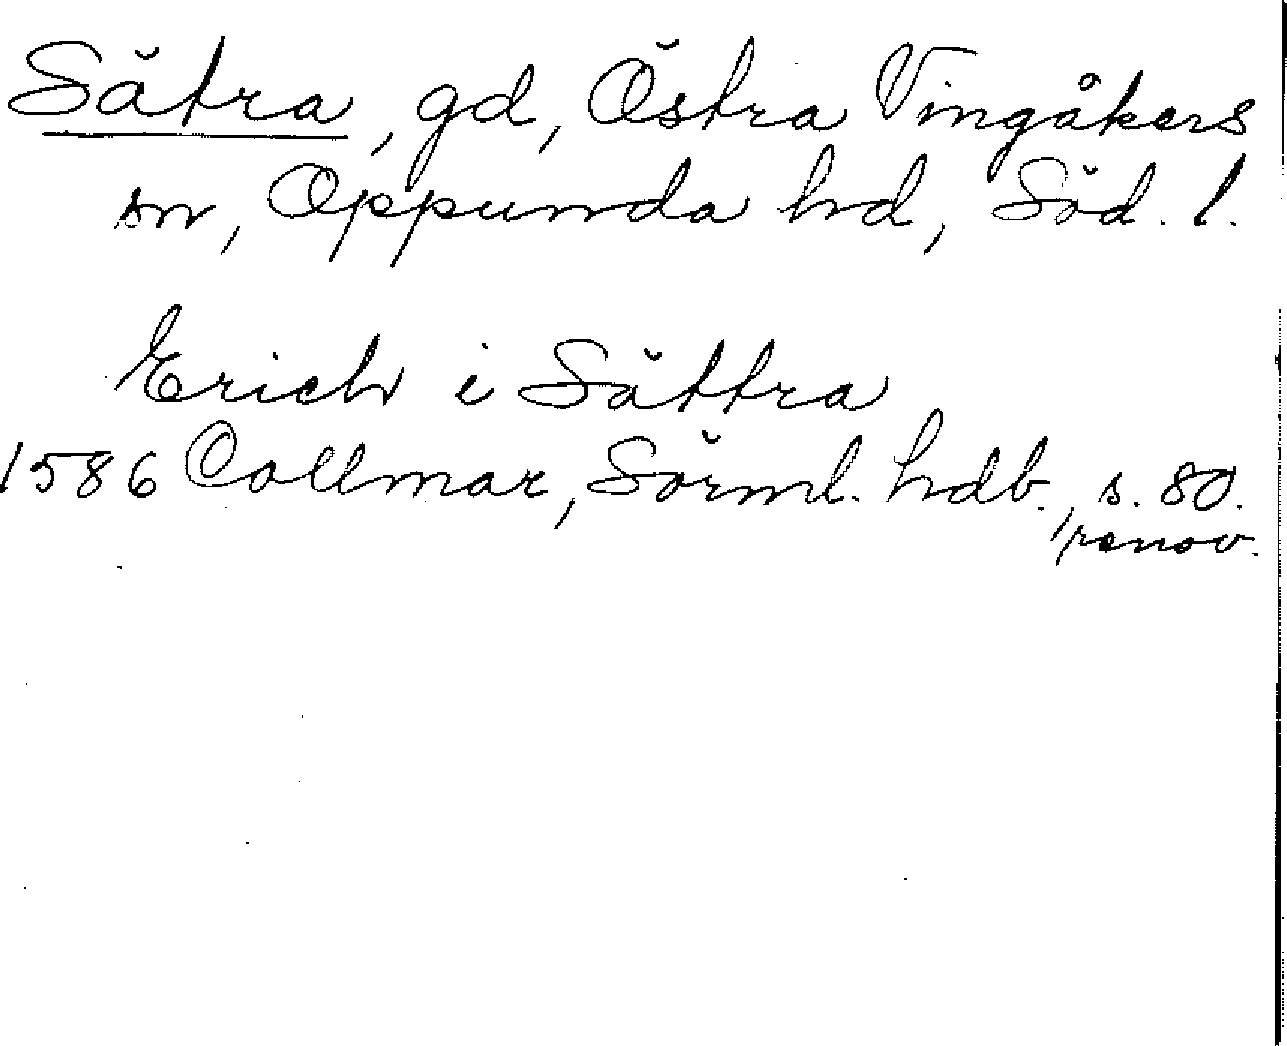 Sätra, gd, Östra Vingåkers
sn, Oppunda hd, Söd. l.
Erich i Sättra
1586 Collmar, Sörml. hdb., s. 80.
/renov.